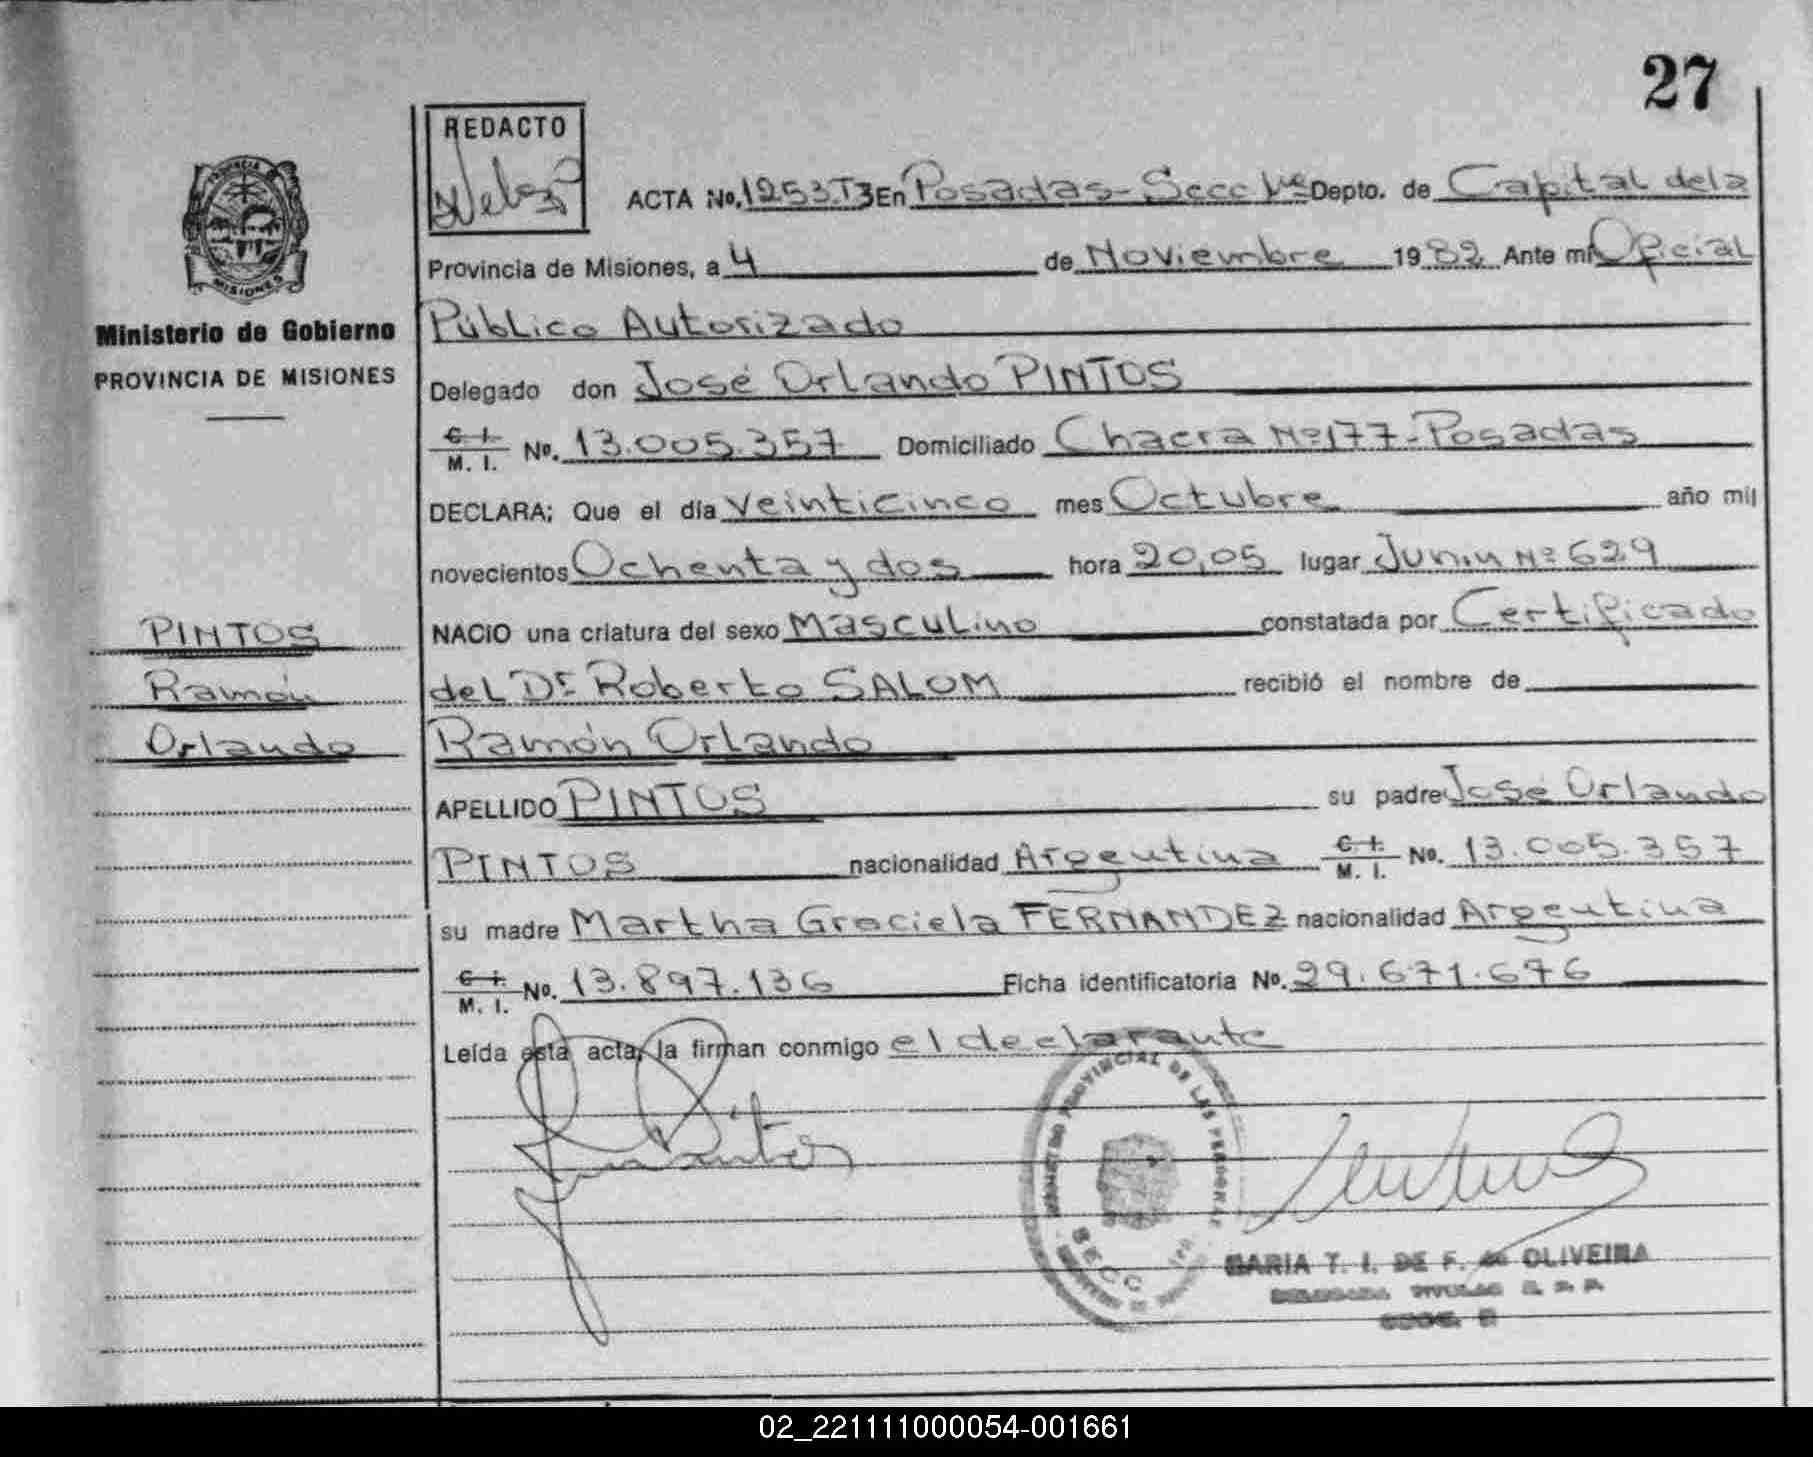 27
REDACTO
ACTA No. 1253.T3 En Posadas - Secc 1ª Depto. de Capital de la
Provincia de Misiones, a 4 de Noviembre 1982 Ante mi Oficial
Público Autorizado
Delegado don José Orlando PINTOS
C. I. M. I. No. 13.005.357 Domiciliado Chacra Nº 177 - Posadas
DECLARA; Que el día Veinticinco mes Octubre año mil
novecientos Ochenta y dos hora 20,05 lugar Junin Nº 629
NACIO una criatura del sexo Masculino constatada por Certificado
del Dr Roberto SALOM recibió el nombre de
Ramón Orlando
APELLIDO PINTOS su padre José Orlando
PINTOS nacionalidad Argentina C. I. M. I. No. 13.005.357
su madre Martha Graciela FERNANDEZ nacionalidad Argentina
C. I. M. I. No. 13.897.136 Ficha identificatoria No. 29.671.676
Leída esta acta, la firman conmigo el declarante
PROVINCIA
MISIONES
Ministerio de Gobierno
PROVINCIA DE MISIONES
PINTOS
Ramón
Orlando
PROVINCIAL DE LAS PERSONAS
SECC
MARIA T. I. DE F. de OLIVEIRA
02_221111000054-001661